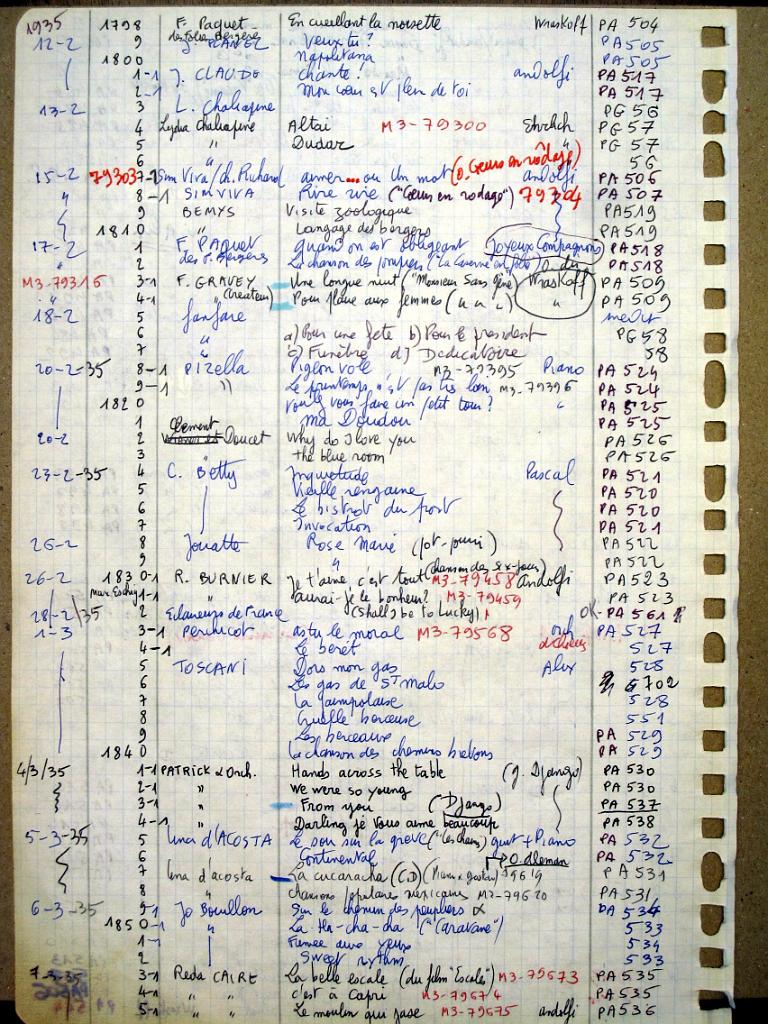 1935 1798 F. Paquet En cueillant la noisette Wraskoff PA 504
des folies Bergères
12-2 9 J. PLANEL Veux tu? PA 505
1800 napolitana PA 505
1-1 J. CLAUDE chante! andolfi PA 517
2-1 " mon cœur est plein de toi PA 517
13-2 3 L. Chaliapine PG 56
4 Lydia Chaliapine Altaï M3-79300 Ehrlich PG 57
5 " Dudar " PG 57
6 " 56
15-2 79303 7-1 Sim Viva/ch. Richard aimer... ou Un mot (d. Cœurs en rodage) andolfi PA 506
" 8-1 SIMVIVA Rire rire ("Cœurs en rodage") 79304 PA 507
9 BEMYS Visite zoologique PA 519
1810 " Langage des bergers PA 519
17-2 1 F. PAQUET quand on est obligeant Joyeux Compagnons PA 518
" 2 des F. Bergères La chanson des pompiers PA 518
M3-79315 3-1 F. GRAVEY Une longue nuit ("Monsieur Sans Gêne") O. du Wraskoff PA 509
" 4-1 (Créateur) Pour plaire aux femmes (" " ") " PA 509
18-2 5 fanfare inedit
6 " a) Pour une fete b) Pour le president PG 58
7 " c) Funèbre d) Dedicatoire 58
20-2-35 8-1 PIZELLA Pigeon vole M3-79395 Piano PA 524
9-1 " Le printemps n'est pas très loin M3-79396 PA 524
1820 voulez vous faire un petit tour? " PA 525
1 ma Doudou PA 525
20-2 2 Clement Doucet Why do I love you PA 526
3 the blue room PA 526
23-2-35 4 C. Betty Inquietude Pascal PA 521
5 Vieille rengaine PA 520
6 Le bistrot du port PA 520
7 Invocation PA 521
26-2 8 Jouatte Rose Marie (pot-pourri) PA 522
9 " PA 522
26-2 1830-1 R. BURNIER Je t'aime c'est tout (chanson des six-jours) M3-79458 andolfi PA 523
1-1 " aurai-je le bonheur? M3-79459 PA 523
28/2/35 2 Eclaireurs de France (Shall be to Lucky) OK- PA 561
1-3 3-1 Perchicot astu le moral M3-79568 orch PA 527
4-1 Le berêt 527
5 TOSCANI Dors mon gas Alix 528
6 Les gas de St malo 5702
7 La paimpolaise 528
8 Cruelle berceuse 551
9 Les berceaux PA 529
1840 La chanson des chemins bretons PA 529
4/3/35 1-1 PATRICK & Orch. Hands across the table (g. Django) PA 530
2-1 " We were so young PA 530
3-1 " From you (Django) PA 537
4-1 " Darling je vous aime beaucoup PA 538
5-3-35 5 Lina d'ACOSTA Le soir sur la grève guit + Piano PA 532
6 Continental O. aleman PA 532
7 Lina d'acosta La cucaracha (C.D) 79619 PA 531
8 " chansons populaires mexicaines M3-79620 PA 531
6-3-35 9-1 Jo Bouillon Sur le chemin des peupliers PA 534
1850-1 " La Ha-cha-cha ("Caravane") 533
1-1 Fumée aux yeux 534
2-1 Sweet rythm 533
7-3-35 3-1 Reda CAIRE La belle escale (du film "Escale") M3-79673 PA 535
4-1 " " c'est à Capri M3-79674 PA 535
5-1 " " Le moulin qui jase M3-79675 andolfi PA 536